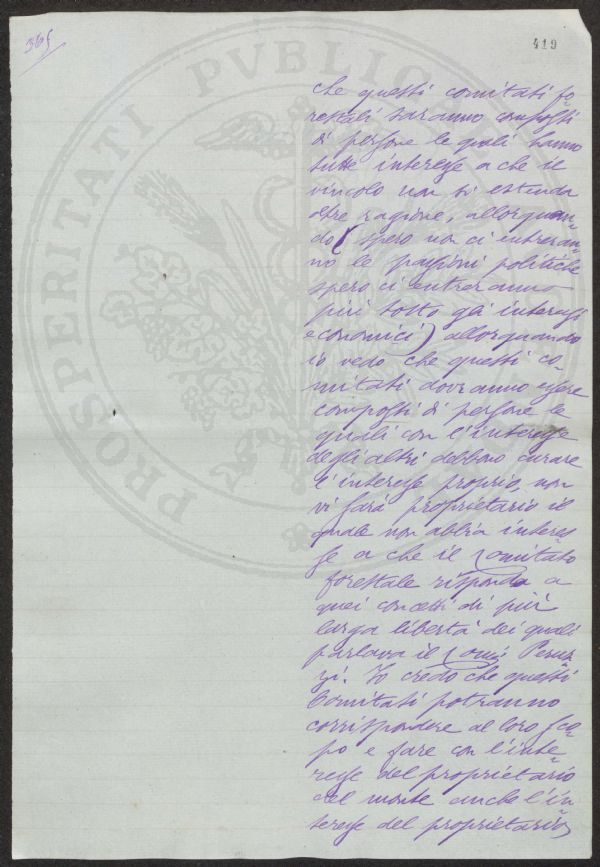 365
419
PROSPERITATI PVBLICAE
che questi comitati fo-
restali saranno composti
di persone le quali hanno
tutte interesse a che il
vincolo non si estenda
oltre ragione, allorquan-
do (spero non ci entreran-
no le passioni politiche
spero ci entreranno
più sotto gli interessi
economici) allorquando
io vedo che questi co-
mitati dovranno essere
composti di persone le
quali con l'interesse
degli altri debbono curare
l'interesse proprio, non
vi sarà proprietario il
quale non abbia interes-
se a che il Comitato
forestale risponda a
quei concetti di più
larga libertà dei quali
parlava il Peruz-
zi. Io credo che questi
Comitati potranno
corrispondere al loro sco-
po e fare con l'inte-
resse del proprietario
del monte anche l'in-
teresse del proprietario